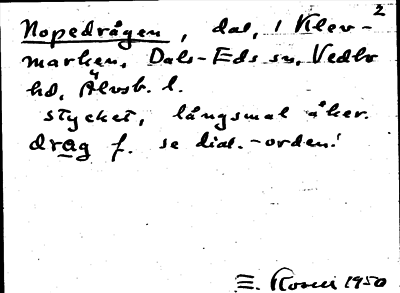 2
Nopedrågen, dal, i Klev-
marken, Dals-Eds sn, Vedbo
hd, Älvsb. l.
stycket, långsmal åker.
drag f. se dial.-orden!
E. 1950